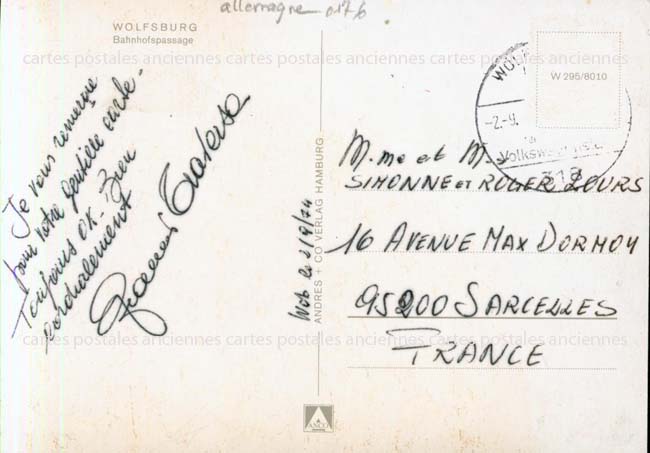 allemagne 0176
WOLFSBURG
Bahnhofspassage
cartes postales anciennes cartes postales anciennes cartes postales anciennes
Je vous remercie
pour votre gentille carte.
Toujours OK. Bien
cordialement
Wob le 2/9/74
ANDRES + CO VERLAG HAMBURG
W 295/8010
WOLF
-2.-9.
Volkswagen
318
M.me et M.
SIMONNE et ROGER LOURS
16 AVENUE MAX DORMOY
95200 SARCELLES
FRANCE
cartes postales anciennes cartes postales anciennes cartes postales anciennes
ANCO